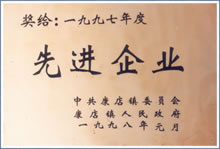 奖给：一九九七年度
先进企业
中共康店镇委员会
康店镇人民政府
一九九八年元月